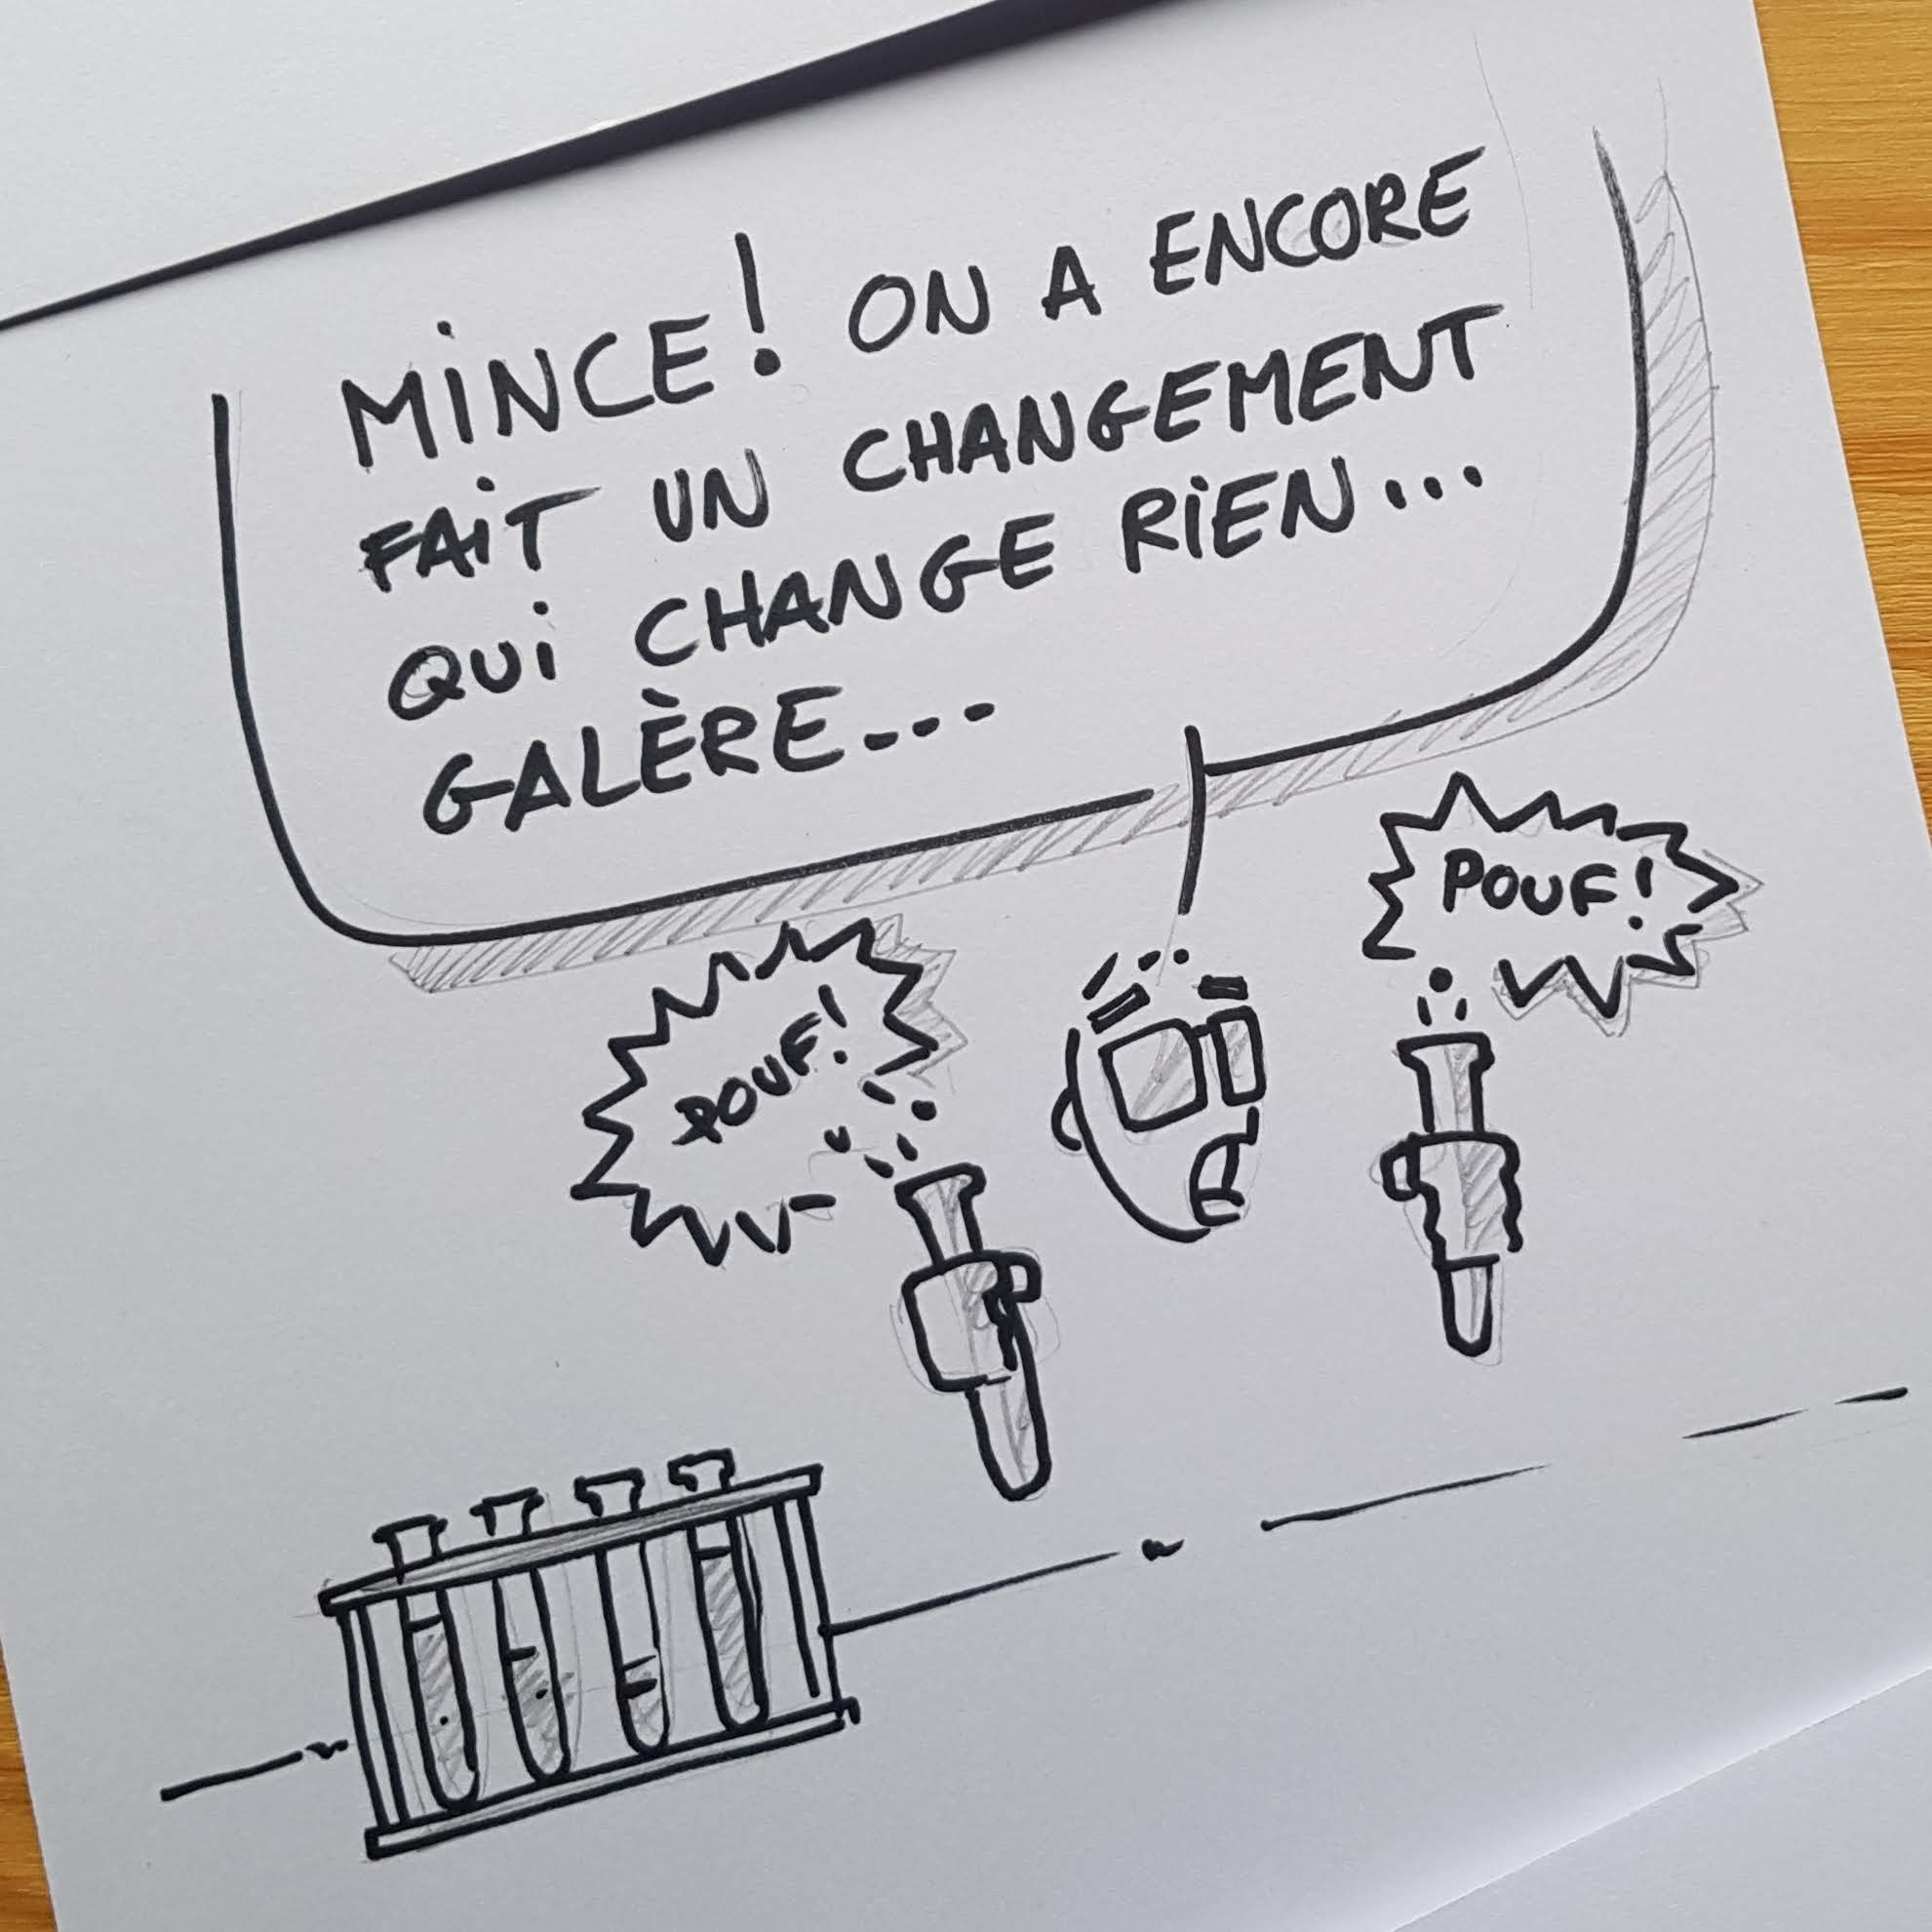 MINCE! ON A ENCORE
FAIT UN CHANGEMENT
QUI CHANGE RIEN...
GALÈRE...
POUF!
POUF!